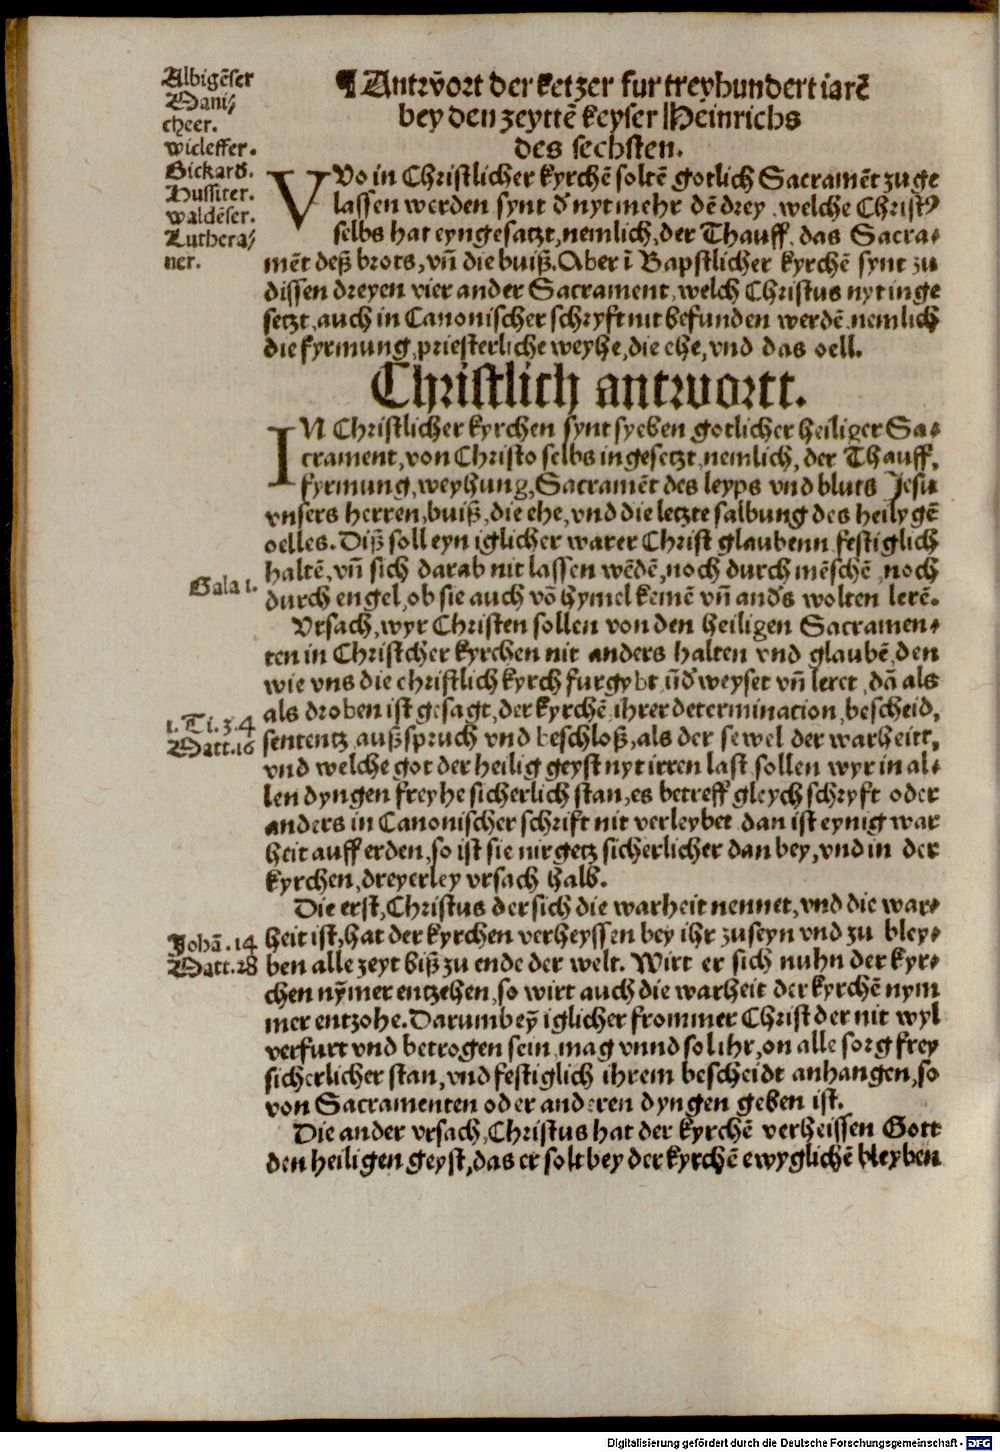 Albigēser
Mani⸗
cheer.
wicleffer.
Pickard.
Hussiter.
waldēser.
Luthera⸗
ner.
¶ Antwort der ketzer fur treyhundert iarē
bey den zeyttē keyser Heinrichs
des sechsten.
VVo in Christlicher kyrchē soltē gotlich Sacramēt zu ge
lassen werden synt d' nyt mehr dē drey, welche Christꝰ
selbs hat eyngesatzt, nemlich, der Thauff, das Sacra⸗
mēt deß brots, vn̄ die buiß. Aber ī Bapstlicher kyrchē synt zu
dissen dreyen vier ander Sacrament, welch Christus nyt inge
setzt, auch in Canonischer schryft nit befunden werdē, nemlich
die fyrmung, priesterliche weyhe, die ehe, vnd das oell.
Christlich antwortt.
IN Christlicher kyrchen synt syeben gotlicher heiliger Sa⸗
crament, von Christo selbs ingesetzt, nemlich, der Thauff,
fyrmung, weyhung, Sacramēt des leyps vnd bluts Jesu
vnsers herren, buiß, die ehe, vnd die letzte salbung des heilygē
oelles. Diß soll eyn iglicher warer Christ glaubenn, festiglich
haltē, vn̄ sich darab nit lassen wēdē, noch durch mēschē, noch
Gala 1.
durch engel, ob sie auch vō hymel kemē vn̄ and's wolten lerē.
Vrsach, wyr Christen sollen von den heiligen Sacramen⸗
ten in Christcher kyrchen nit anders halten vnd glaubē, den
wie vns die christlich kyrch furgybt, ūd'weyset vn̄ leret, dā als
1. Ti. 3. 4
als droben ist gesagt, der kyrchē ihrer determination, bescheid,
Matt. 16
sententz, außspruch vnd beschloß, als der sewel der warheitt,
vnd welche got der heilig geyst nyt irren last, sollen wyr in al⸗
len dyngen freyhe sicherlich stan, es betreff gleych schryft oder
anders in Canonischer schrift nit verleybet, dan ist eynig war
heit auff erden, so ist sie nirgetz sicherlicher dan bey, vnd in der
kyrchen, dreyerley vrsach halb.
Die erst, Christus der sich die warheit nennet, vnd die war⸗
Johā. 14
heit ist, hat der kyrchen verheyssen bey ihr zu seyn vnd zu bley⸗
Matt. 28
ben alle zeyt biß zu ende der welt. Wirt er sich nuhn der kyr⸗
chen nȳmer entzehen, so wirt auch die warheit der kyrchē nym
mer entzohe. Darumb eȳ iglicher frommer Christ der nit wyl
verfurt vnd betrogen sein, mag vnnd sol ihr, on alle sorg frey
sicherlicher stan, vnd festiglich ihrem bescheidt anhangen, so
von Sacramenten oder anderen dyngen geben ist.
Die ander vrsach, Christus hat der kyrchē verheissen Gott
den heiligen geyst, das er solt bey der kyrchē ewyglichē bleyben
Digitalisierung gefördert durch die Deutsche Forschungsgemeinschaft - DFG